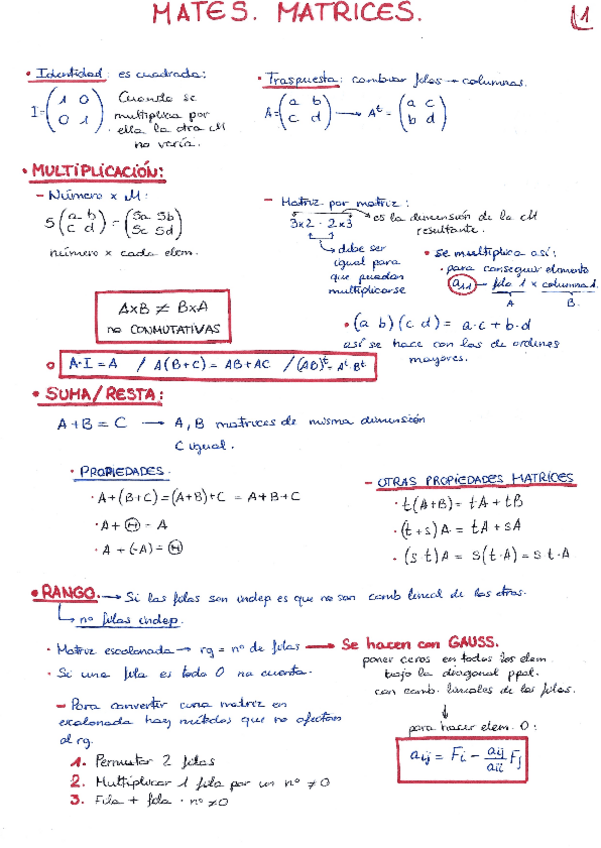 MATES. MATRICES.
1
• Identidad: es cuadrada:
I = (1 0
0 1)
Cuando se
multiplica por
ella la otra M
no varía.
• Traspuesta: cambiar filas → columnas.
A = (a b
c d) → Aᵗ = (a c
b d)
• MULTIPLICACIÓN:
- Número x M:
5 (a b
c d) = (5a 5b
5c 5d)
número x cada elem.
- Matriz por matriz:
3x2 · 2x3 → es la dimensión de la M
resultante.
debe ser
igual para
que puedan
multiplicarse
• se multiplica así:
• para conseguir elemento
a₁₁ — fila 1 x columna 1.
A B.
AxB ≠ BxA
no CONMUTATIVAS
• (a b)(c d) = a·c + b·d
así se hace con las de ordenes
mayores.
A·I = A / A(B+C) = AB + AC / (AB)ᵗ = Aᵗ·Bᵗ
• SUMA/RESTA:
A + B = C → A, B matrices de misma dimensión
C igual.
• PROPIEDADES.
• A+(B+C) = (A+B)+C = A+B+C
• A + Ⓗ = A
• A + (-A) = Ⓗ
- OTRAS PROPIEDADES MATRICES
• t(A+B) = tA + tB
• (t+s)A = tA + sA
• (s t)A = s(t·A) = s t·A
• RANGO. → Si las filas son indep es que no son comb lineal de las otras.
nº filas indep.
• Matriz escalonada → rg = nº de filas → Se hacen con GAUSS.
• Si una fila es todo 0 no cuenta.
poner ceros en todos los elem
bajo la diagonal ppal.
con comb. lineales de las filas.
- Para convertir una matriz en
escalonada hay métodos que no afectan
al rg.
1. Permutar 2 filas
2. Multiplicar 1 fila por un nº ≠ 0
3. Fila + fila · nº ≠ 0
para hacer elem. 0:
aij = Fi - aij/aii Fj